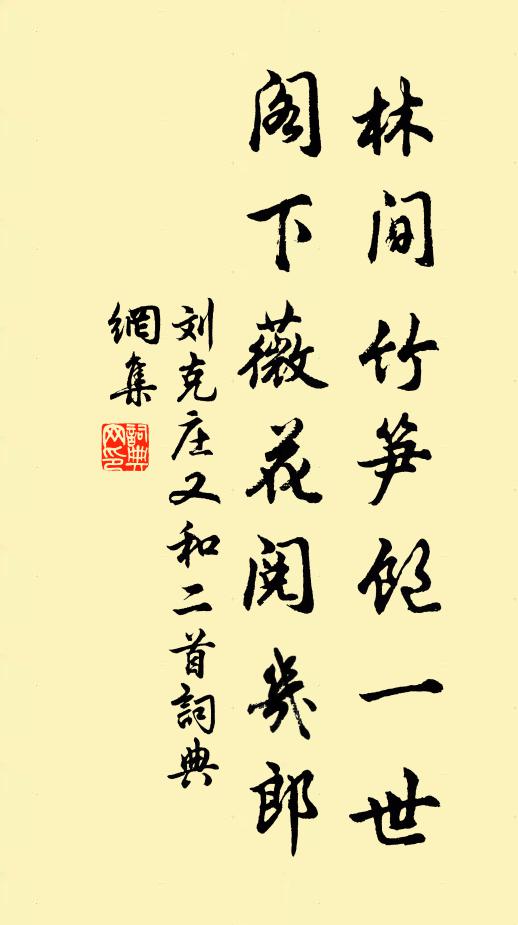 林间竹笋饱一世
阁下薇花阅幾郎
刘克庄又和二首詞典
網集
詞典
网印